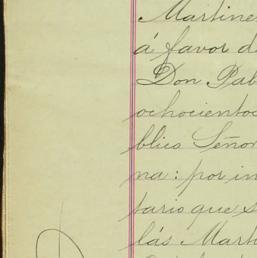 Martine
á favor d
Don Pab
ochociento
blico Señor
na: por in
tario que s
lás Mart